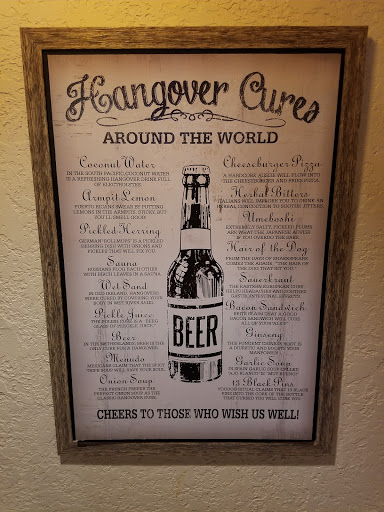 Hangover Cures
AROUND THE WORLD
Coconut Water
IN THE SOUTH PACIFIC, COCONUT WATER
IS A REFRESHING HANGOVER DRINK FULL
OF ELECTROLYTES.
Armpit Lemon
PUERTO RICANS SWEAR BY PUTTING
LEMONS IN THE ARMPITS. STICKY, BUT
YOU'LL SMELL GOOD!
Pickled Herring
GERMAN "ROLLMOPS" IS A PICKLED
HERRING DISH WITH ONIONS AND
PICKLES THAT WILL FIX YOU.
Sauna
RUSSIANS FLOG EACH OTHER
WITH BIRCH LEAVES IN A SAUNA.
Wet Sand
IN OLD IRELAND, HANGOVERS
WERE CURED BY COVERING YOUR
BODY IN WET RIVER SAND.
Pickle Juice
THE POLISH CURE IS A BEER
GLASS OF PICKLE JUICE.
Beer
IN THE NETHERLANDS, BEER IS THE
ONLY CURE FOR A HANGOVER.
Menudo
MEXICANS CLAIM THAT THE SPICY
TRIPE SOUP WILL SAVE YOUR SOUL.
Onion Soup
THE FRENCH PREFER THE
PERFECT ONION SOUP AS THE
CLASSIC HANGOVER CURE.
BEER
Cheeseburger Pizza
A HANGOVER
THE CHEESEBURGER AND FRIES PIZZA.
Herbal Bitters
ITALIANS WILL IMPLORE YOU TO DRINK AN
HERBAL CONCOCTION TO SOOTHE BITTERS.
Umeboshi
EXTREMELY SALTY, PICKLED PLUMS
ARE WHAT THE JAPANESE ADVISE
IF YOU OVERDO THE SAKE.
Hair of the Dog
FROM THE DAYS OF SHAKESPEARE
COMES THE ADAGE, "THE HAIR OF
THE DOG THAT BIT YOU."
Sauerkraut
THE EASTERN EUROPEAN CURE
HEADACHES AND
GASTROINTESTINAL
Bacon Sandwich
BRITS CLAIM THAT A GOOD
BACON SANDWICH WILL "CURE
ALL OF YOUR ILLS!"
Ginseng
THIS PUNGENT CHINESE ROOT IS
A DIURETIC AND BOOSTS YOUR
Garlic Soup
SPANISH GARLIC SOUP CALLED
13 Black Pins
VOODOO RITUAL CLAIMS THAT 13 BLACK
PINS INTO THE CORK OF THE BOTTLE
THAT CURSED YOU WILL CURE YOU.
CHEERS TO THOSE WHO WISH US WELL!